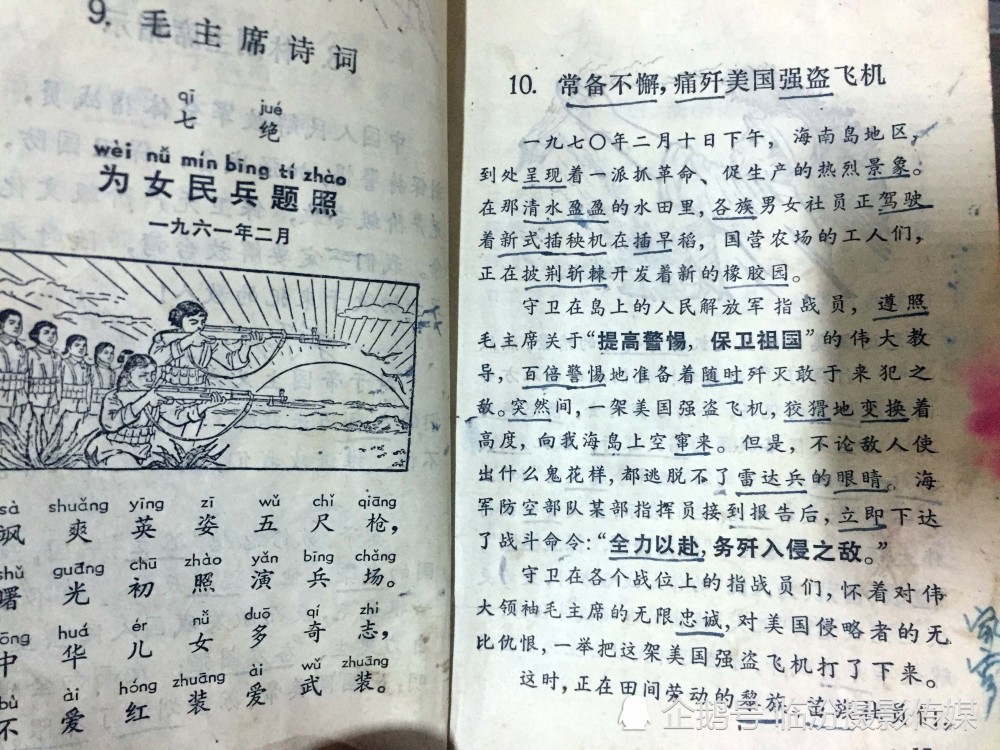 9. 毛主席诗词
qī jué
七 绝
wèi nǚ mín bīng tí zhào
为女民兵题照
一九六一年二月
sà shuǎng yīng zī wǔ chǐ qiāng
飒 爽 英 姿 五 尺 枪，
shǔ guāng chū zhào yǎn bīng chǎng
曙 光 初 照 演 兵 场。
huá ér nǚ duō qí zhì
中 华 儿 女 多 奇 志，
bù ài hóng zhuāng ài wǔ zhuāng
不 爱 红 装 爱 武 装。
10. 常备不懈，痛歼美国强盗飞机
一九七〇年二月十日下午，海南岛地区，
到处呈现着一派抓革命、促生产的热烈景象。
在那清水盈盈的水田里，各族男女社员正驾驶
着新式插秧机在插早稻，国营农场的工人们，
正在披荆斩棘开发着新的橡胶园。
守卫在岛上的人民解放军指战员，遵照
毛主席关于“提高警惕，保卫祖国”的伟大教
导，百倍警惕地准备着随时歼灭敢于来犯之
敌。突然间，一架美国强盗飞机，狡猾地变换着
高度，向我海岛上空窜来。但是，不论敌人使
出什么鬼花样，都逃脱不了雷达兵的眼睛。海
军防空部队某部指挥员接到报告后，立即下达
了战斗命令：“全力以赴，务歼入侵之敌。”
守卫在各个战位上的指战员们，怀着对伟
大领袖毛主席的无限忠诚，对美国侵略者的无
比仇恨，一举把这架美国强盗飞机打了下来。
这时，正在田间劳动的黎族、苗族社员们，
企鹅号 临沂摄影传媒